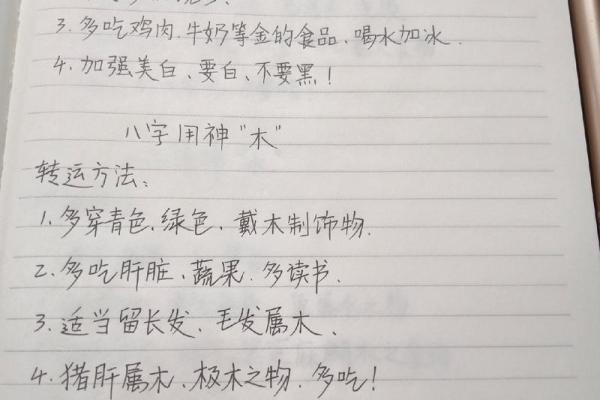 3. 多吃鸡肉.牛奶等金的食品、喝水加冰.
4. 加强美白、要白、不要黑!
八字用神"木"
转运方法:
1. 多穿青色.绿色. 戴木制饰物.
2. 多吃肝脏、蔬果.多读书.
3. 适当留长发、毛发属木、
4. 猪肝属木、极木之物.多吃!